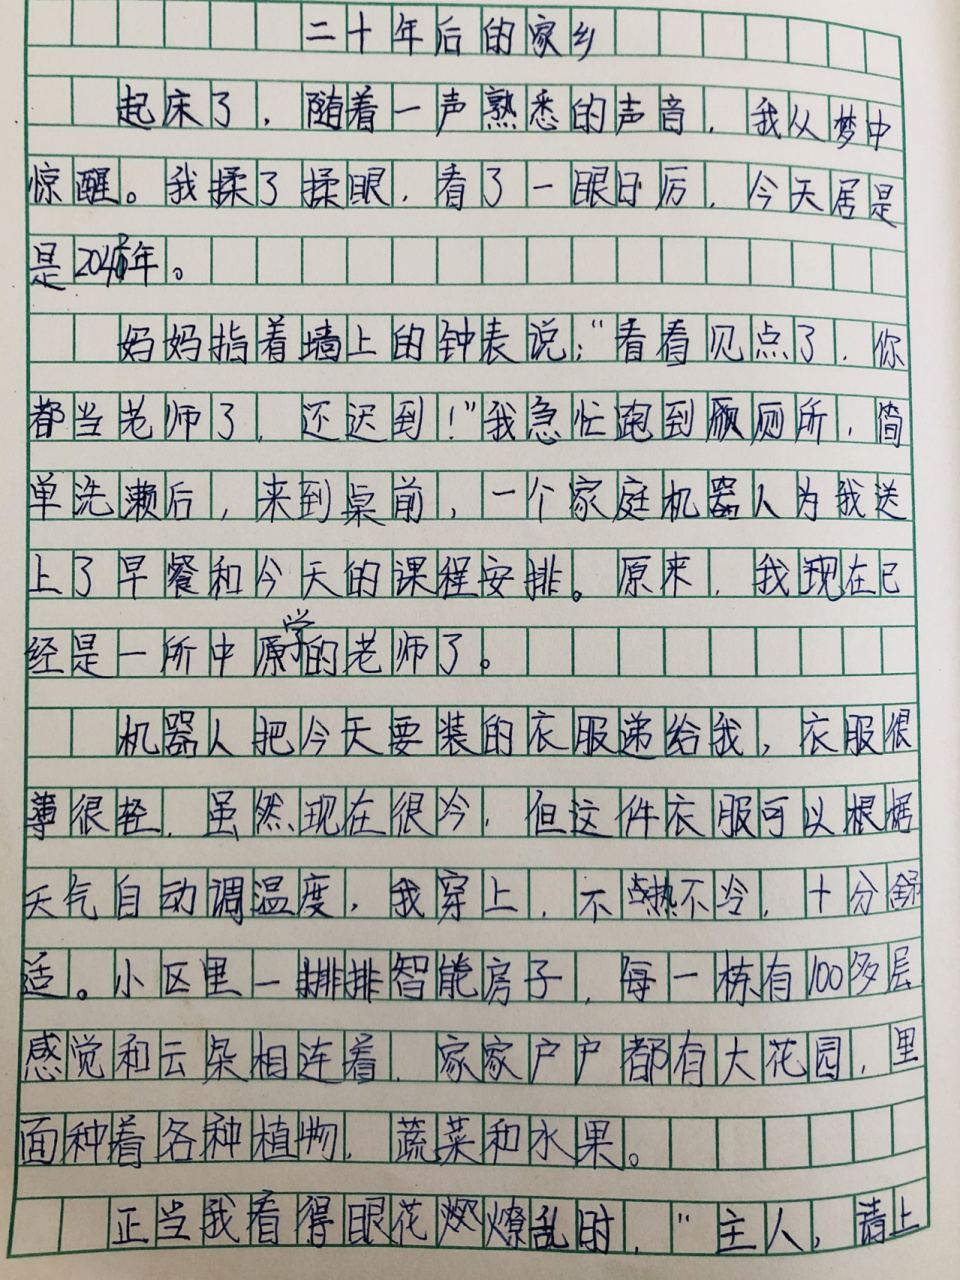 二十年后的家乡
起床了，随着一声熟悉的声音，我从梦中
惊醒。我揉了揉眼，看了一眼日历，今天居是
是2046年。
妈妈指着墙上的钟表说：“看看见点了，你
都当老师了，还迟到！”我急忙跑到厕所，简
单洗濑后，来到桌前，一个家庭机器人为我送
上了早餐和今天的课程安排。原来，我现在已
经是一所中学的老师了。
机器人把今天要装的衣服递给我，衣服很
薄很轻，虽然现在很冷，但这件衣服可以根据
天气自动调温度，我穿上，不热不冷，十分舒
适。小区里一排排智能房子，每一栋有100多层
感觉和云朵相连着，家家户户都有大花园，里
面种着各种植物，蔬菜和水果。
正当我看得眼花燎乱时，“主人，请上